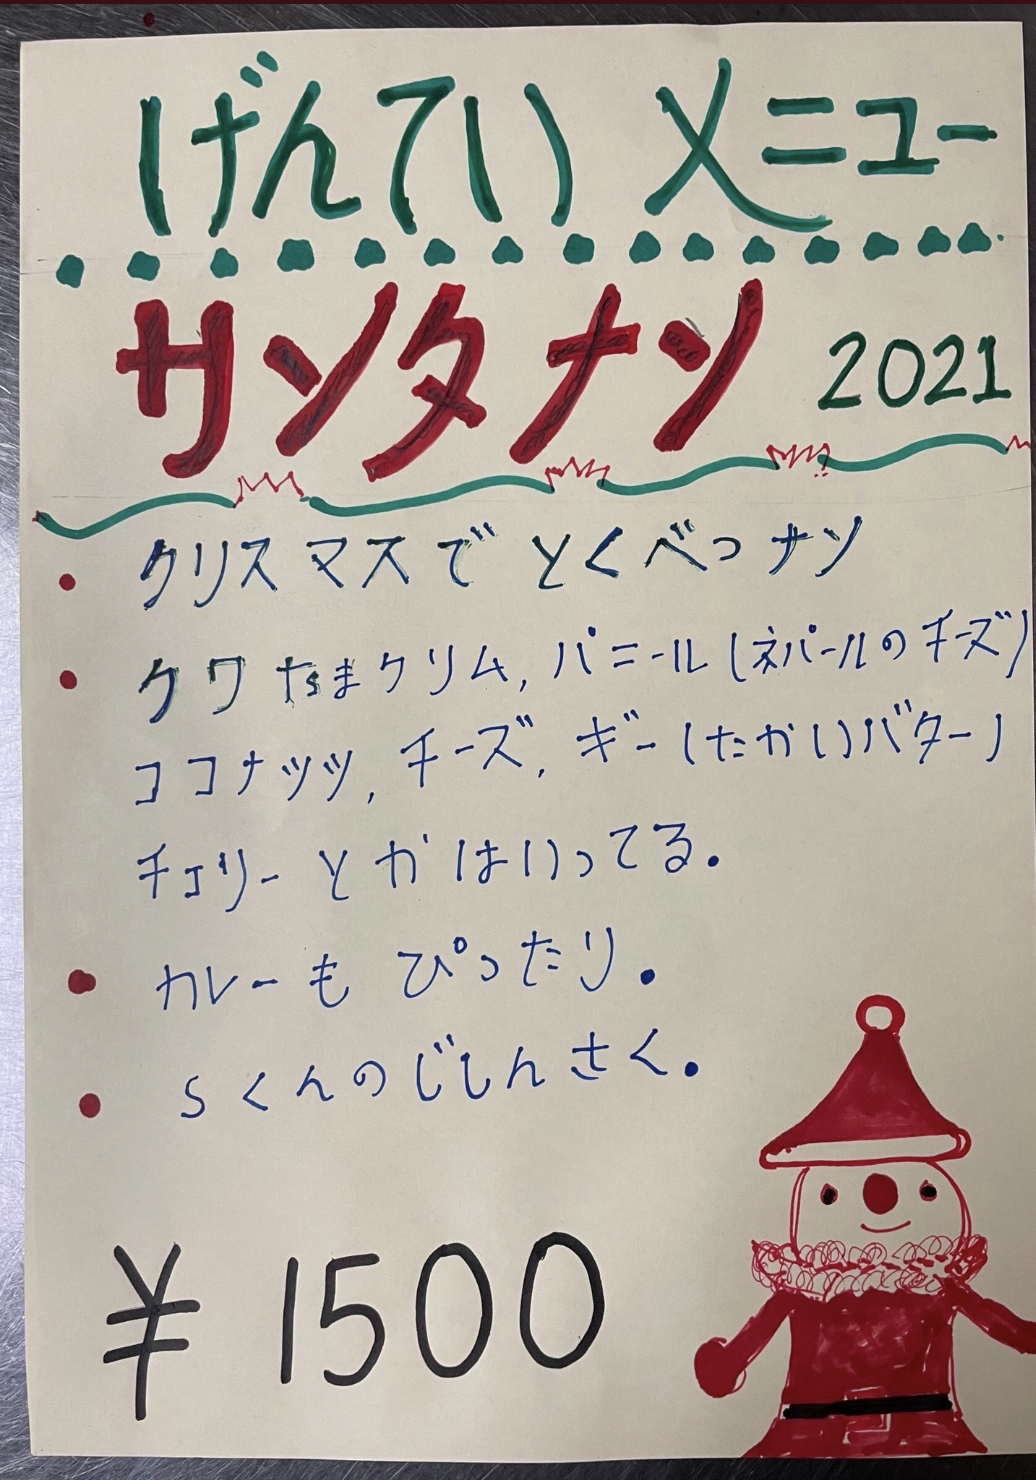 げんてい メニュー
サンタ ナン 2021
・ クリスマスで とくべつ ナン
・ クワ たまクリム, パニール (ネパールのチーズ)
ココナッツ, チーズ, ギー (たかいバター)
チェリー とか はいってる.
・ カレーも ぴったり.
・ Sくんのじしんさく.
¥ 1500